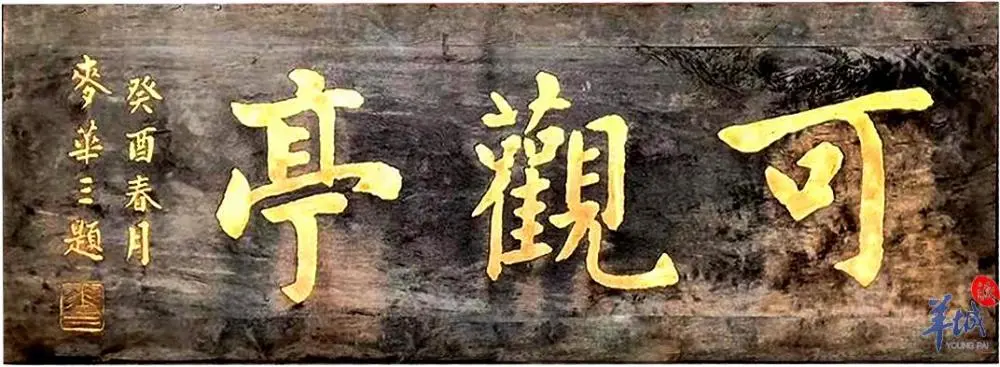 可觀亭
癸酉春月
麥華三題
羊城派
YOUNG PAI